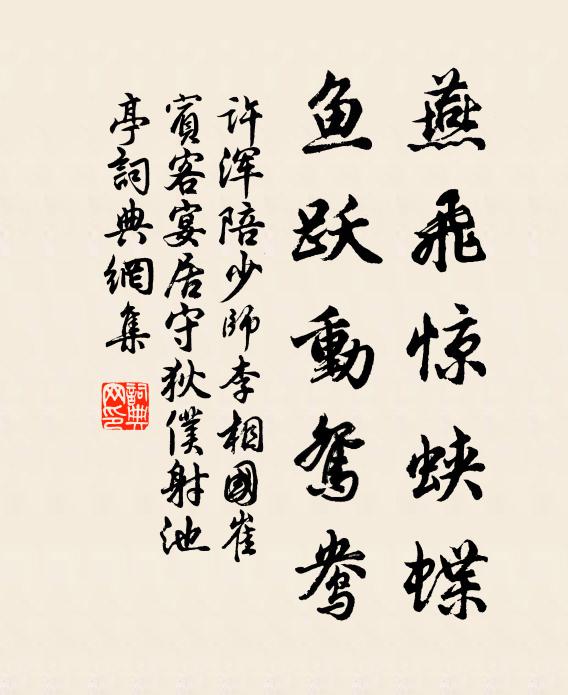 燕飛惊蛱蝶
鱼跃動鸳鸯
许浑陪少師李相國崔
賓客宴居守狄僕射池
亭詞典網集
詞典網印